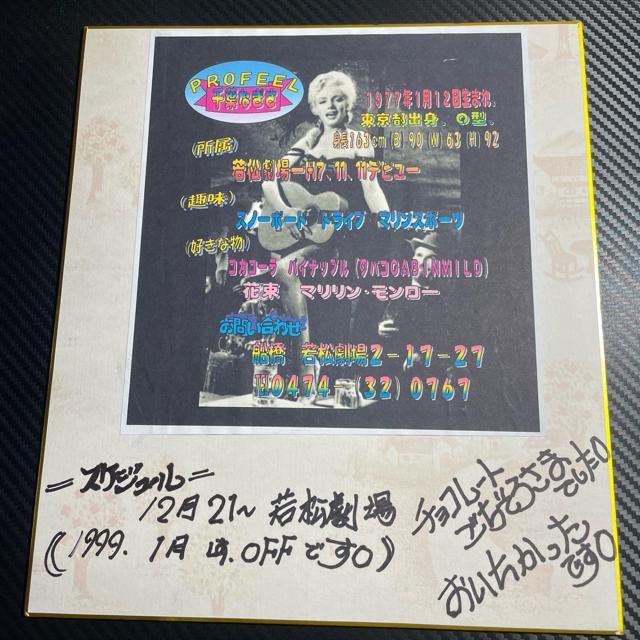 PROFEEL
千葉なぎさ
1977年1月12日生まれ。
東京都出身。O型。
身長163cm(B)90(W)63(H)92
(所属)
若松劇場ーH7、11、11デビュー
(趣味)
スノーボード ドライブ マリンスポーツ
(好きな物)
コカコーラ パイナップル(タバコCABINMILD)
花束 マリリン・モンロー
お問い合わせ
船橋 若松劇場2-17-27
TEL0474-(32)0767
=スケジュール=
12月21〜 若松劇場
(1999. 1月は.OFFです。)
チョコレート
ごちそうさまでした。
おいちかったです。